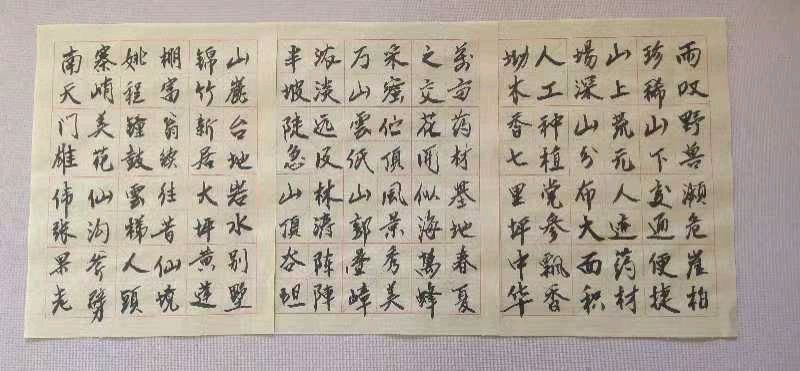 雨叹野兽濒危崖柏
珍稀山下交通便捷
山上荒无人迹药材
場深山分布大面积
人工种植党参飘香
坳木香七里坪中华
萬亩药材基地春夏
之交花開似海萬蜂
采蜜伫頂風景秀美
万山雲低山郭叠嶂
浓淡远近林涛阵陣
半坡陡急山頂谷坦
山麓台地岩水别墅
锦竹新居大坪黄莲
棚富翁族往昔仙境
姚程鐘鼓雲梯人頭
寨峭美花仙沟斧劈
南天门雄伟张果老